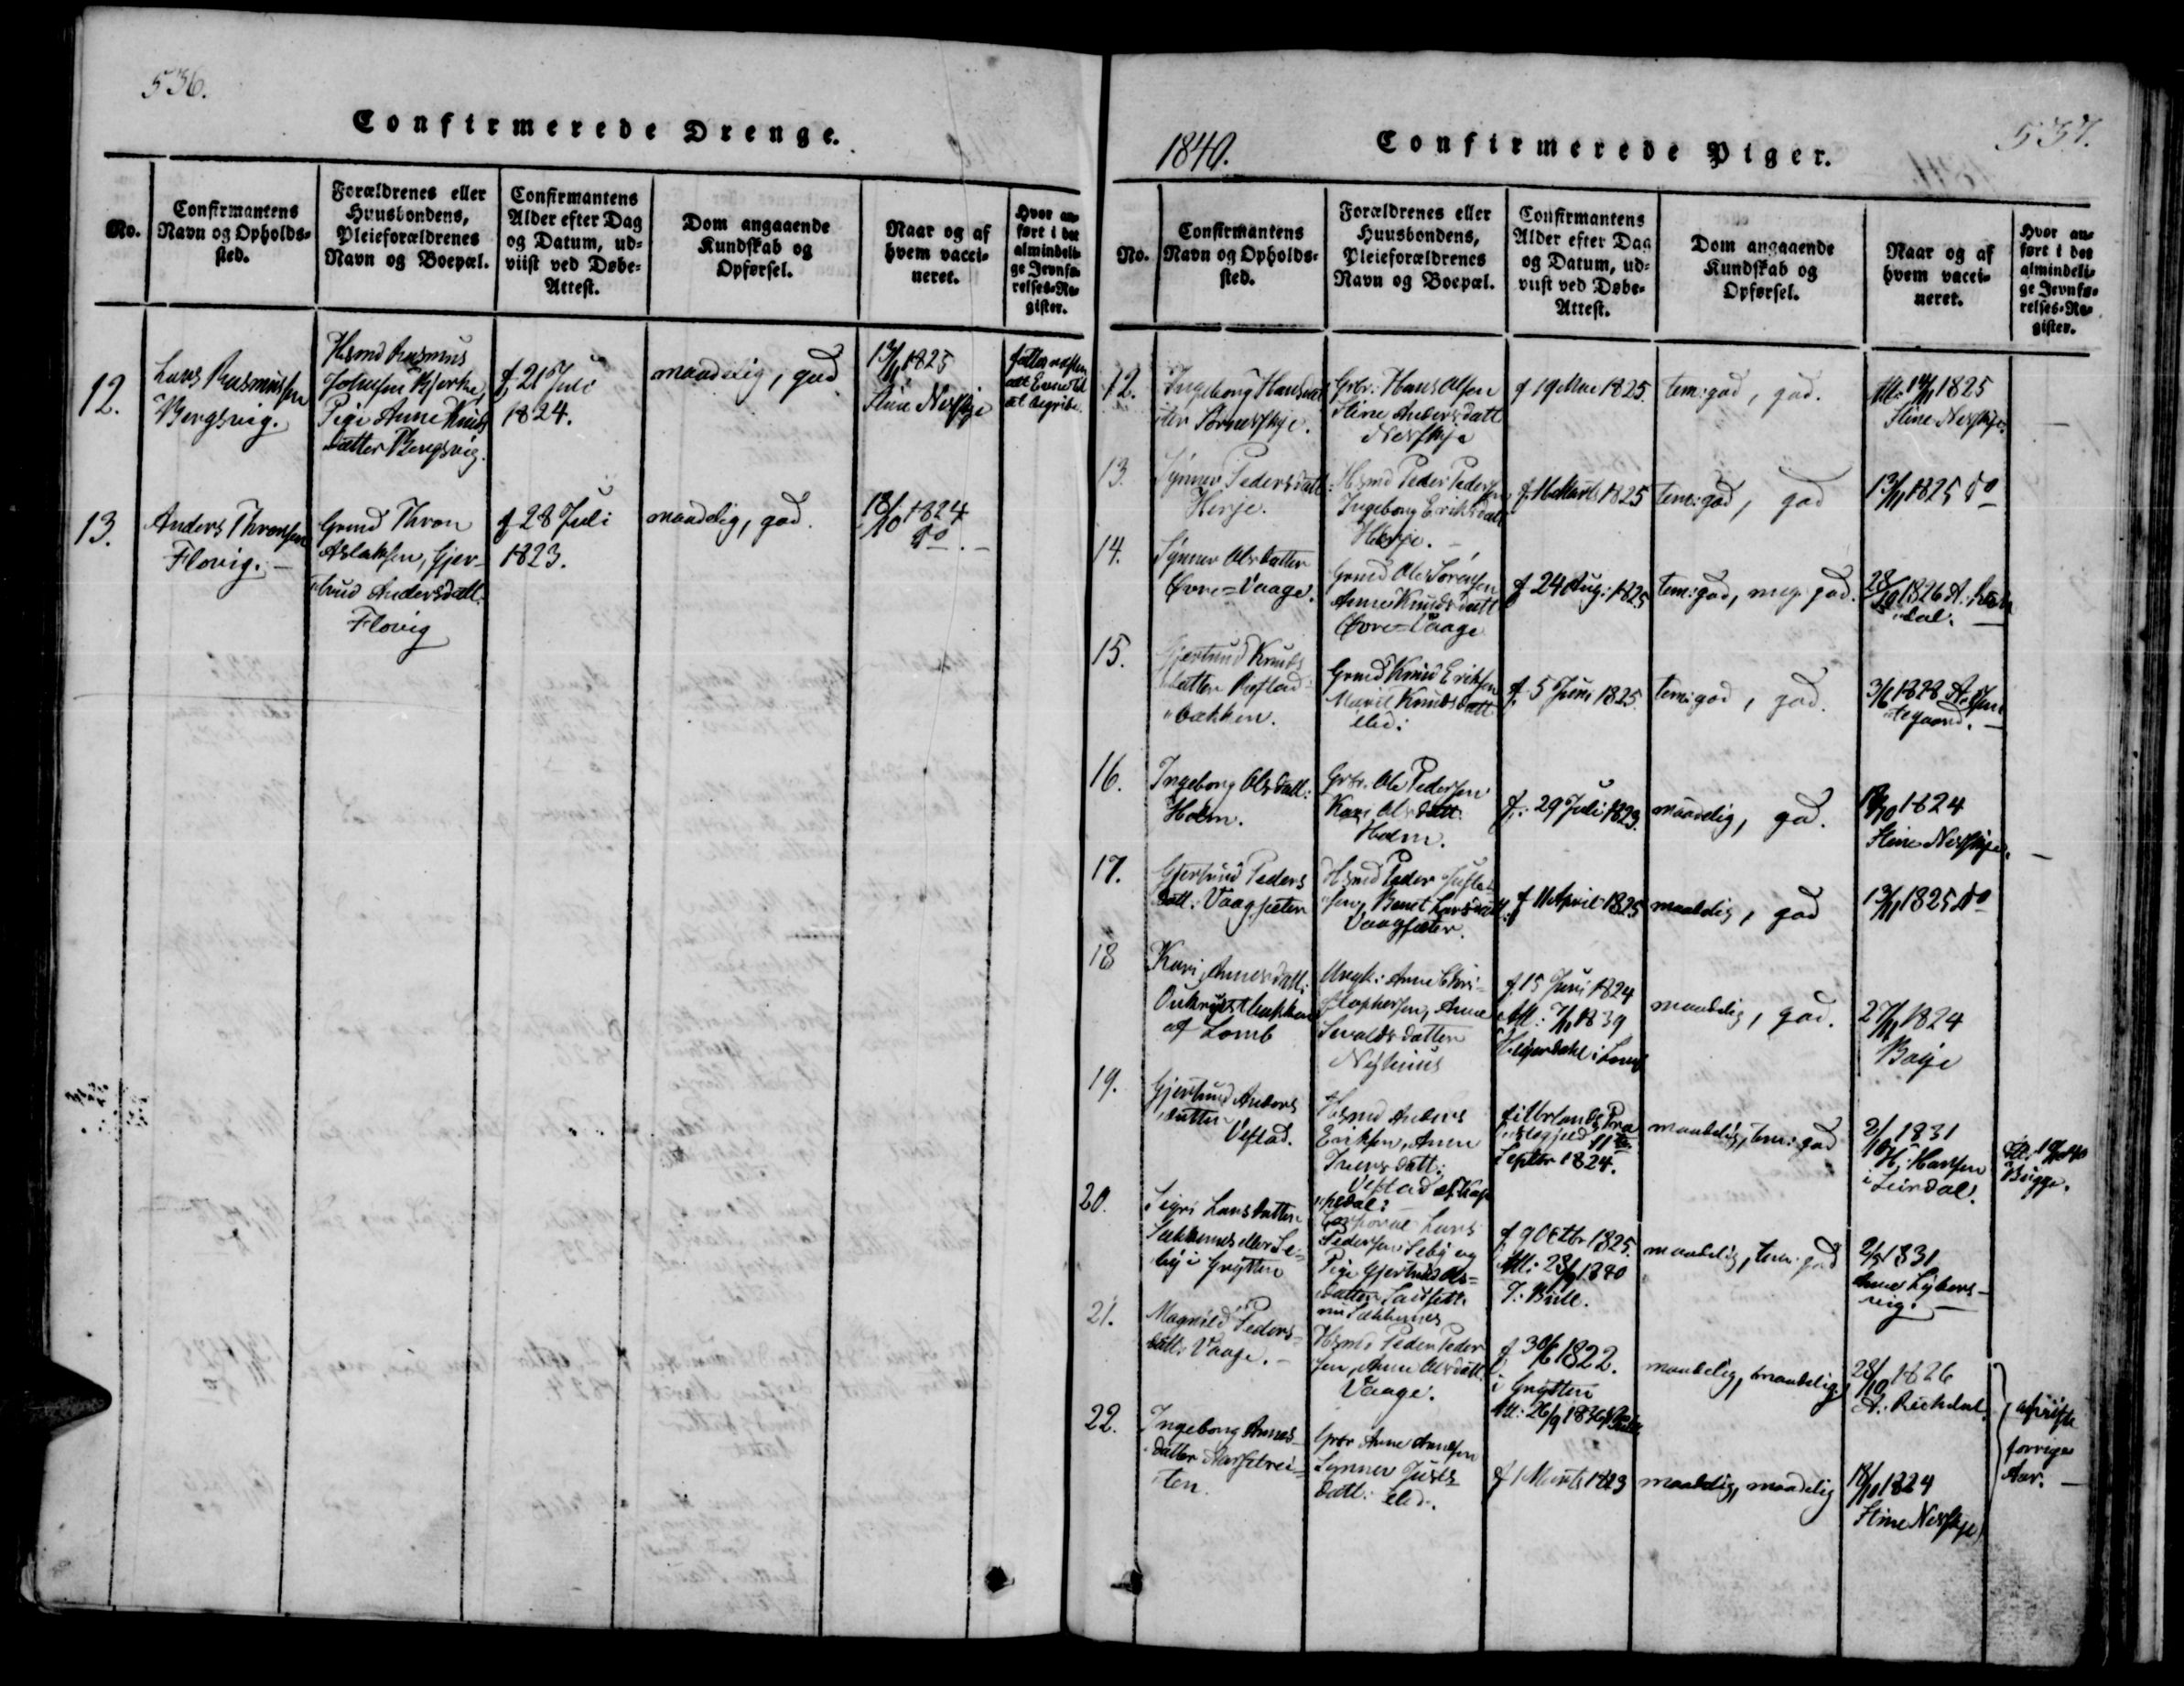 536.
Confirmerede Drenge.
No.
Confirmantens
Navn og Opholds-
sted.
Forældrenes eller
Huusbondens,
Pleieforældrenes
Navn og Boepæl.
Confirmantens
Alder efter Dag
og Datum, ud-
viist ved Døbe-
Attest.
Dom angaaende
Kundskab og
Opførsel.
Naar og af
hvem vacci-
neret.
Hvor an-
ført i det
almindeli-
ge Jevnfø-
relses-Re-
gister.
12.
Lars Rasmussen
Bergsvig.
Hsmd Rasmus
Johnsen Bjerke,
Pige Anne Knuds
datter Bergsvig.
f. 21 Juli
1824.
maadelig, god
13/11 1825
Stine Nesskje
13.
Anders Thronsen
Flovig.
Grmd Thron
Aslaksen, Gjer-
trud Andersdatt.
Flovig
f 28 Juli
1823.
maadelig, god.
18/10 1824
do
1840.
Confirmerede Piger.
537.
No.
Confirmantens
Navn og Opholds-
sted.
Forældrenes eller
Huusbondens,
Pleieforældrenes
Navn og Boepæl.
Confirmantens
Alder efter Dag
og Datum, ud-
viist ved Døbe-
Attest.
Dom angaaende
Kundskab og
Opførsel.
Naar og af
hvem vacci-
neret.
Hvor an-
ført i det
almindeli-
ge Jevnfø-
relses-Re-
gister.
12.
Ingeborg Hansdat
ter
Grbr: Hans Olsen
Stine Andersdatt
Nesskje
f 19 Mai 1825.
tem: god, god.
1825
Stine Nesskje.
13.
Synnev Pedersdatt:
Herje.
Hsmd Peder Pedersen
Ingeborg Eriksdatt
Herje.
f. 16 Marts 1825
tem: god, god
13/11 1825 do
14.
Synnev Olsdatter
Øvre=Vaage.
Grmd Ole Sørensen
Anne Knudsdatt
Øvre=Vaage
f 24 Aug: 1825
tem: god, meg. god.
28/10 1826 A:
dal.
15.
Gjertrud Knuds
datter
bækken.
Grmd Knud Eriksen
Marit Knudsdatt
ibid:
f. 5 Juni 1825.
tem: god, god.
3/6 1828
16.
Ingeborg Olsdatt:
Holm.
Grbr. Ole Pedersen
Kari Olsdatt:
Holm.
f: 29 Juli 1823.
maadelig, god.
18/10 1824
Stine Nesskje.
17.
Gjertrud Peders
datt: Vaagsæter
Hsmd Peder
sen, Beret Larsdatt:
Vaagsæter.
f 11 April 1825
maadelig, god
13/11 1825 do
18
Kari Arnesdatt:
af Lomb
Ungk: Arne Chri-
stophersen, Anne
Sivaldsdatter
Nyhuus
f. 15 Juni 1824
Att: 7/11 1839
maadelig, god.
27/11 1824
19.
Gjertrud Anders
datter
Vestad.
Hsmd Anders
Eriksen, Anne
Iversdatt:
Vestad
Præ
stegjeld 11te
Septbr 1824.
maadelig, tem: god
2/10 1831
H: Hansen
i Leirdal.
Bugge.
20.
Sigri Larsdatter
Sækkenes eller Se-
by i Grytten
Corporal Lars
Pedersen Seby og
Pige Gjertrud Ols-
datter
nu Sækkenes
f 9 Octbr 1825.
Att: 28/9 1840
J: Bull.
maadelig, tem: god
2/5 1831
21.
Magnild Peders-
datt: Vaage.
Hsmd Peder Peder
sen, Anne Olsdatt:
Vaage.
f 30/6 1822.
i Grytten
Att: 26/9 1836
maadelig, maadelig
28/10 1826
22.
Ingeborg Arnes-
datter
ten.
Grbr Arne Arnesen
Synnev
datt: ibid.
f 1 Marts 1823
maadelig, maadelig
18/10 1824
Stine Nesskje
afviiste
forrige
Aar.